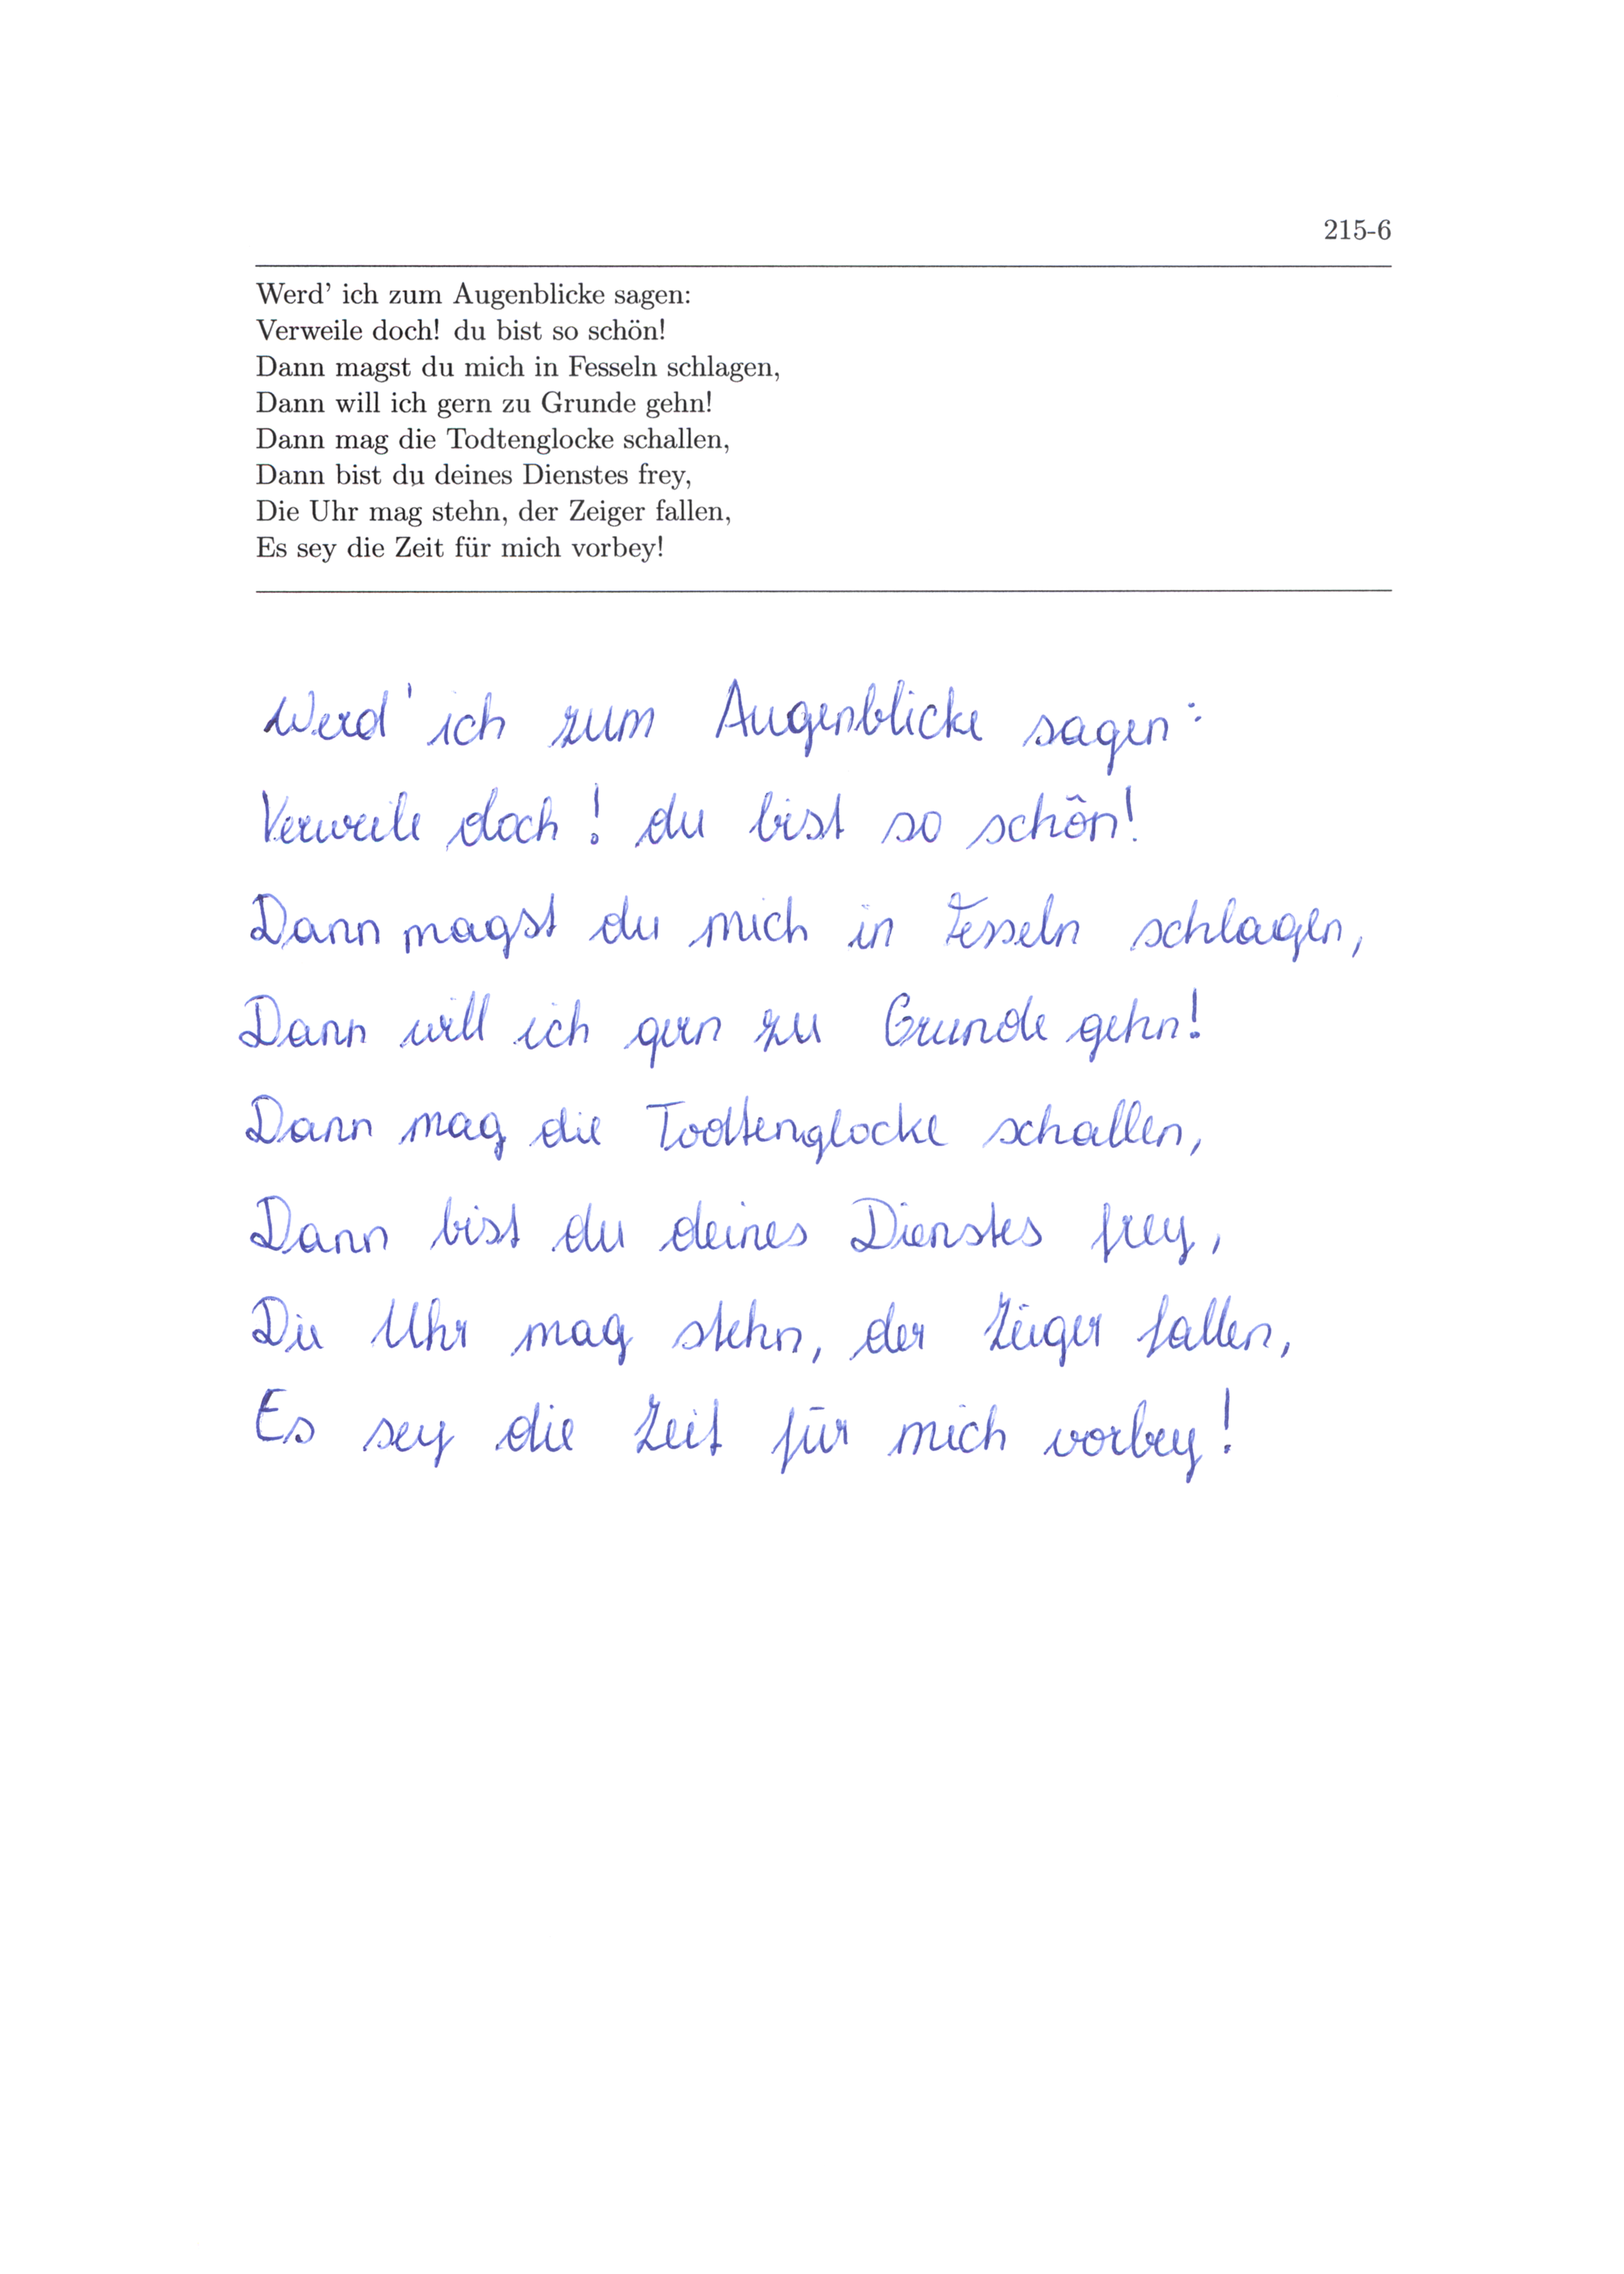 215-6
Werd' ich zum Augenblicke sagen:
Verweile doch! du bist so schön!
Dann magst du mich in Fesseln schlagen,
Dann will ich gern zu Grunde gehn!
Dann mag die Todtenglocke schallen,
Dann bist du deines Dienstes frey,
Die Uhr mag stehn, der Zeiger fallen,
Es sey die Zeit für mich vorbey!
Werd' ich zum Augenblicke sagen:
Verweile doch! du bist so schön!
Dann magst du mich in Fesseln schlagen,
Dann will ich gern zu Grunde gehn!
Dann mag die Todtenglocke schallen,
Dann bist du deines Dienstes frey,
Die Uhr mag stehn, der Zeiger fallen,
Es sey die Zeit für mich vorbey!